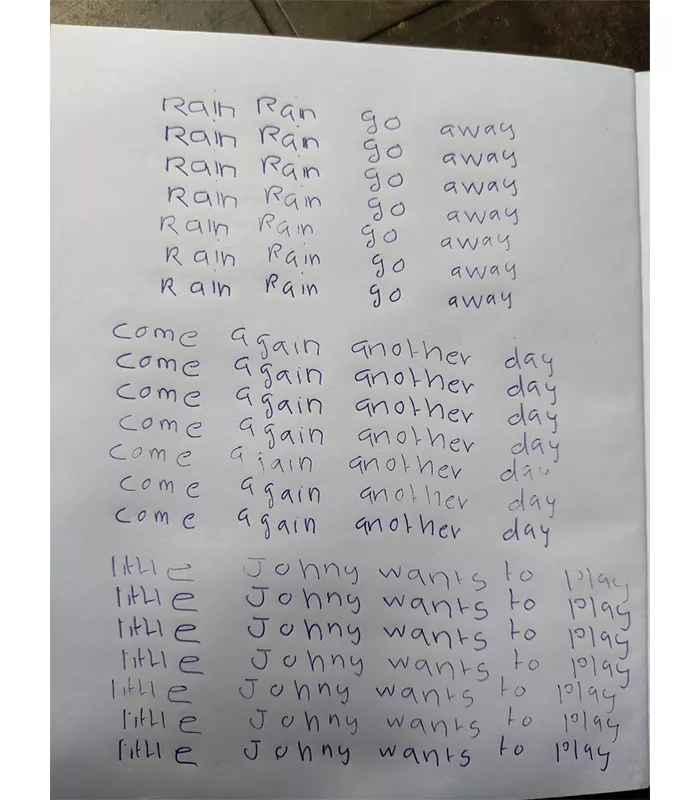 Rain Ran go away
Rain Ran go away
Rain Rain go away
Rain Rain go away
Rain Rain go away
Rain Rain go away
Rain Rain go away
come again another day
come again another day
come again another day
come again another day
come again another day
come again another day
come again another day
little Johny wants to play
little Johny wants to play
little Johny wants to play
little Johny wants to play
little Johny wants to play
little Johny wants to play
little Johny wants to play